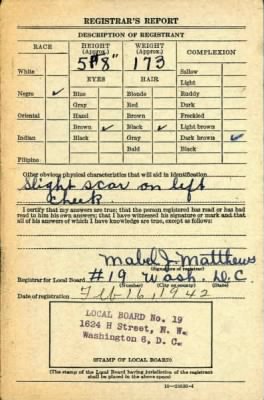 REGISTRAR'S REPORT
DESCRIPTION OF REGISTRANT
RACE HEIGHT (Approx.) WEIGHT (Approx.) COMPLEXION
5' 8" 173
White Sallow
EYES HAIR Light
Negro ✓ Blue Blonde Ruddy
Gray Red Dark
Oriental Hazel Brown Freckled
Brown ✓ Black ✓ Light brown
Indian Black Gray Dark brown ✓
Bald Black
Filipino
Other obvious physical characteristics that will aid in identification
Slight scar on left
cheek
I certify that my answers are true; that the person registered has read or has had
read to him his own answers; that I have witnessed his signature or mark and that
all of his answers of which I have knowledge are true, except as follows:
Mabel J. Matthews
(Signature of registrar)
Registrar for Local Board #19 Wash. D.C.
(Number) (City or county) (State)
Date of registration Feb 16, 1942
LOCAL BOARD No. 19
1624 H Street, N. W.
Washington 6, D. C.
(STAMP OF LOCAL BOARD)
(The stamp of the Local Board having jurisdiction of the registrant
shall be placed in the above space.)